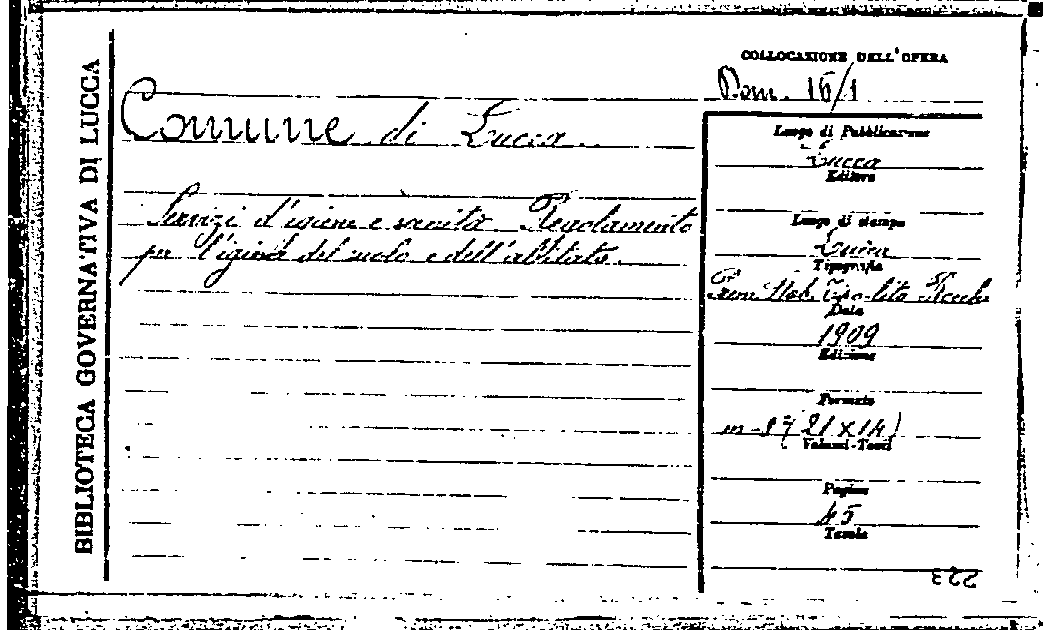 BIBLIOTECA GOVERNATIVA DI LUCCA
Comune di Lucca.
Servizi d'igiene e sanità Regolamento
per l'igiene del suolo e dell'abbitato.
COLLOCAZIONE DELL'OPERA
16/1
Luogo di Pubblicazione
Lucca
Editore
Luogo di stampa
Lucca
Tipografia
Prem. Stab. Tipo-lito
Data
1909
Edizione
Formato
in-8° (21 X 14)
Volumi-Tomi
Pagine
45
Tavole
223